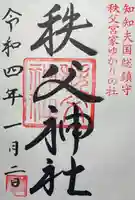 知知夫国総鎮守
秩父宮家ゆかりの社
秩父神社
令和四年一月二日